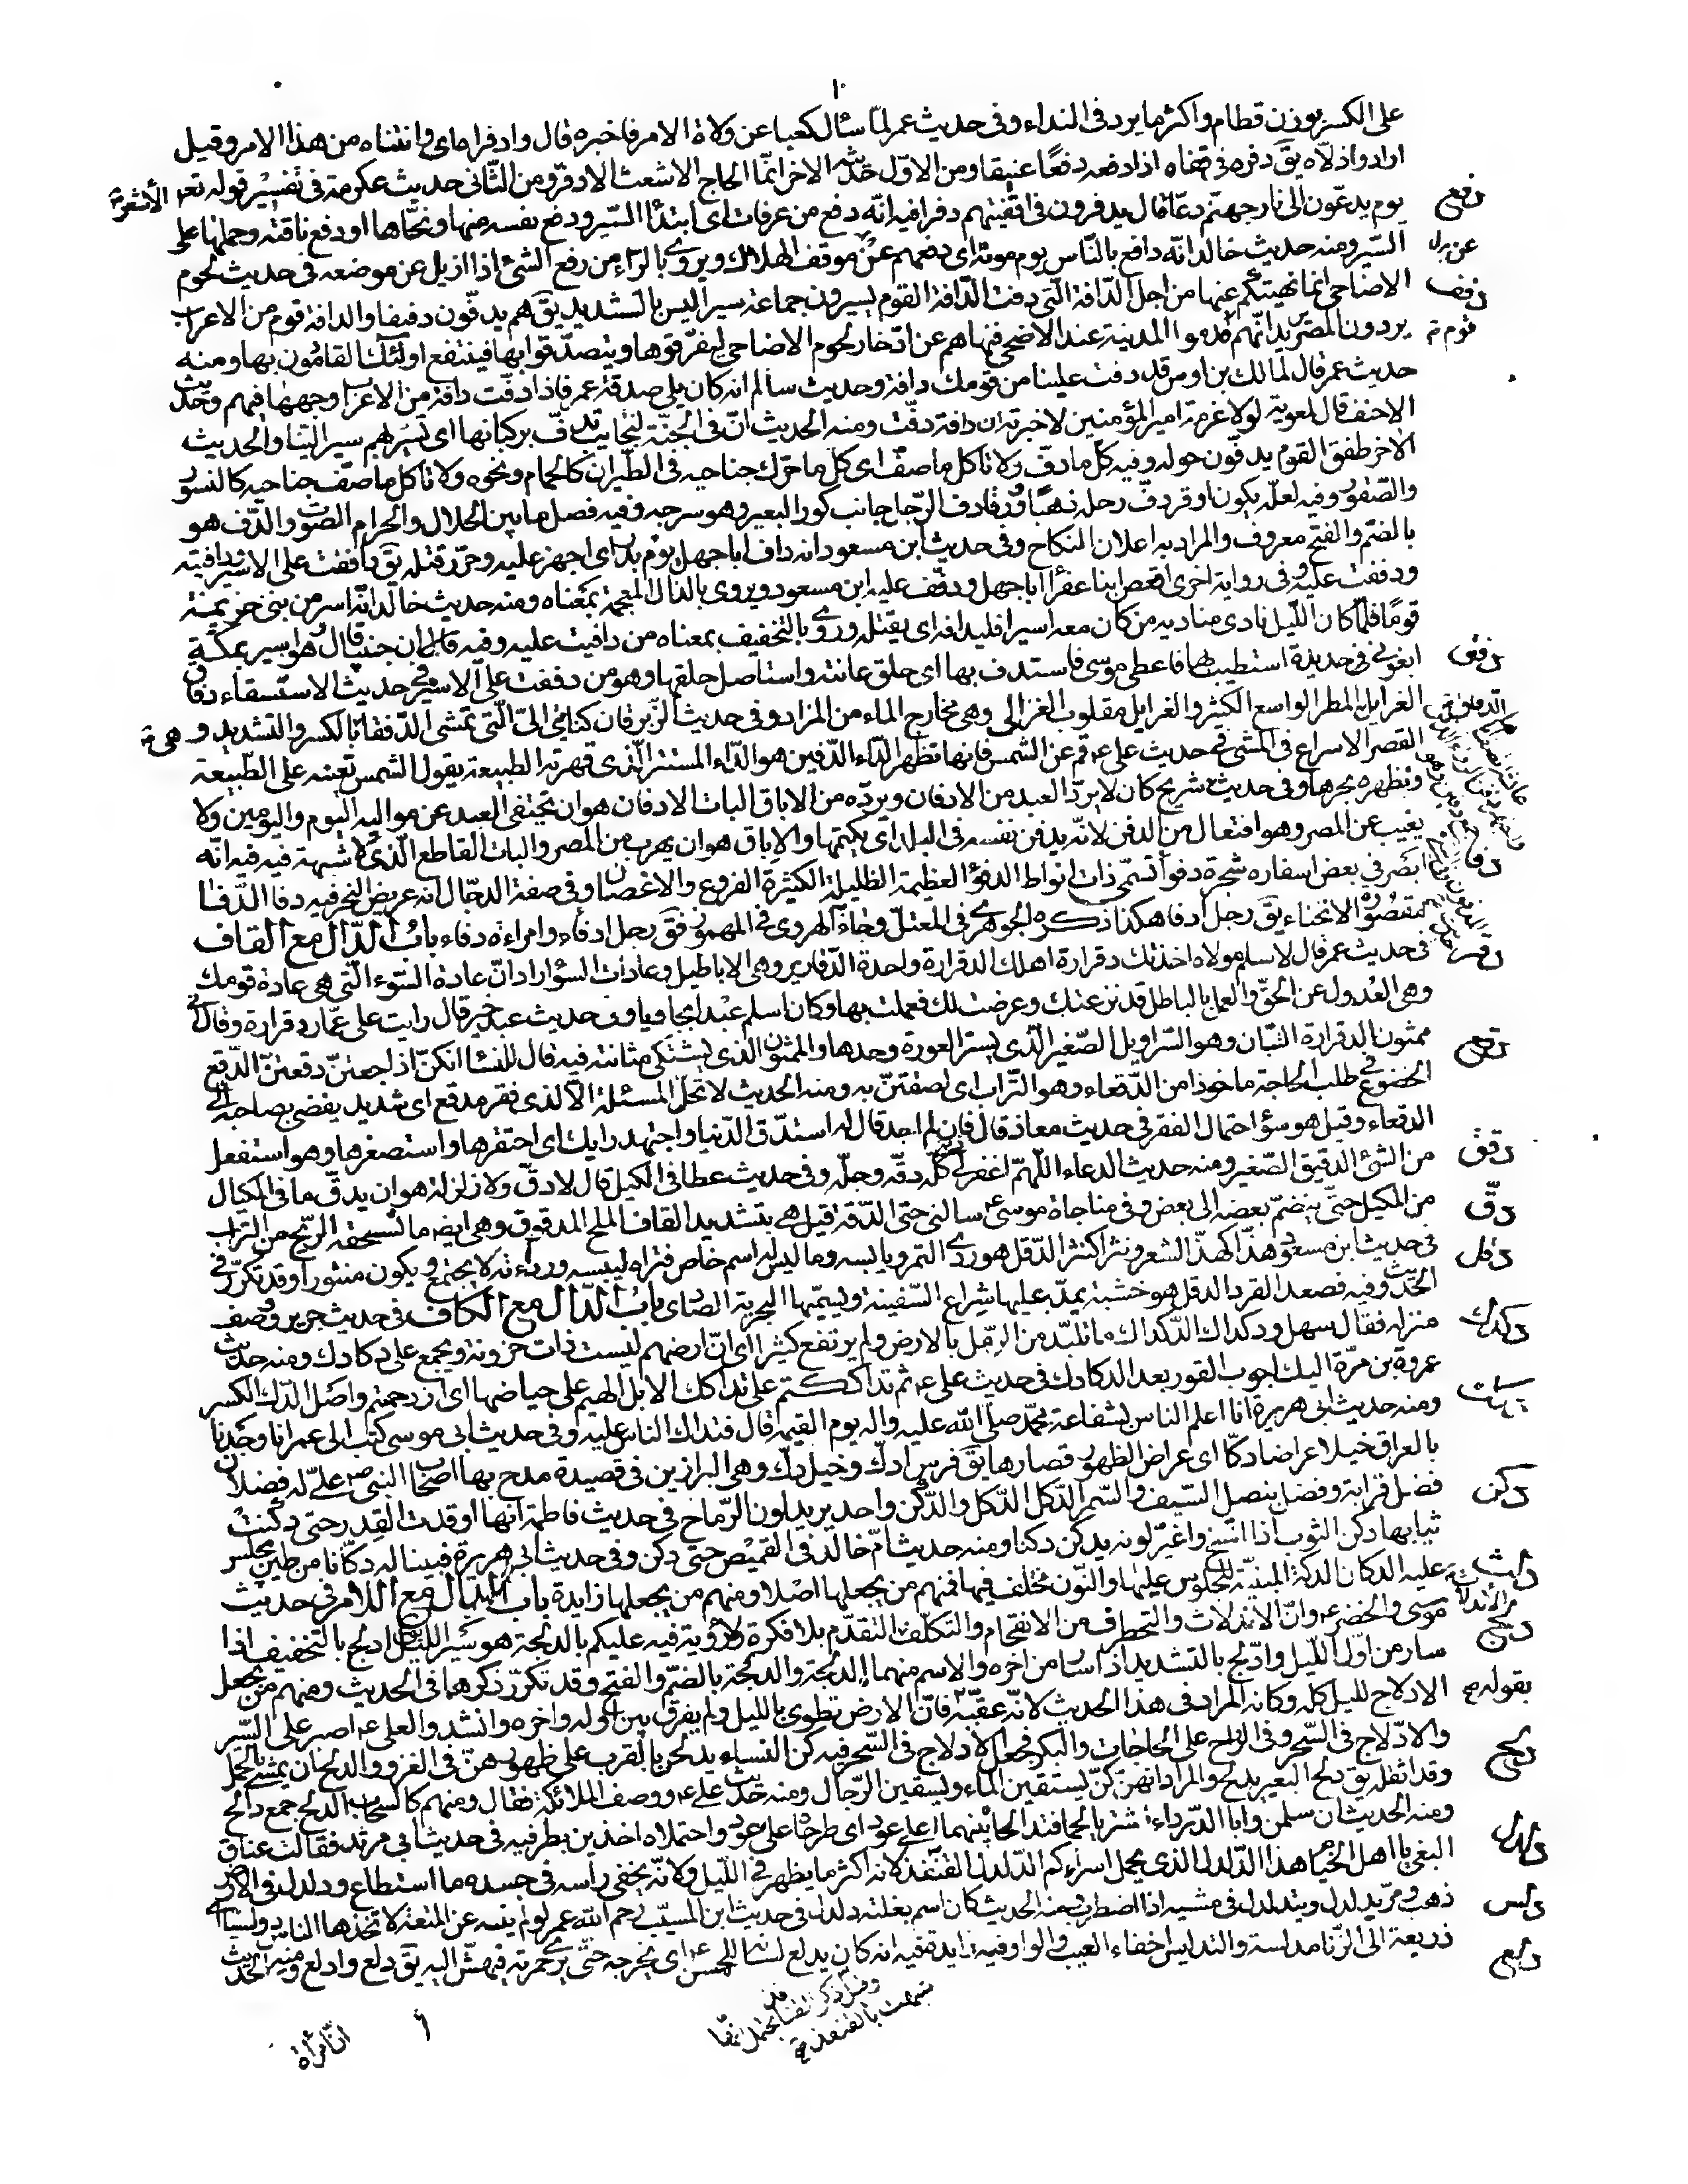 على الكسر بوزن قطام واكثر ما يرد فى النداء وفى حديث عمر لمّا سئال كعبا عن ولاة الامر فاخبره قال وادفراه اى وانتناه من هذا الامر وقيل
اراد واذلاّه يقَ دفره فى قفاه اذا دفعه دفعًا عنيفا ومن الاوّل حديثه الاخر انّما الحاج الاشعث الادفر ومن الثّانى حديث عكرمة فى تفسير قوله تعه
يوم يدعّون الى نار جهنّم دعّا قال يدفرون فى اقفيتهم دفرا فيه انّه دفع من عرفات اى ابتدأ السّير ودفع نفسه منها ونحّاها او دفع ناقته وحملها على
السّير ومنه حديث خالد انّه دافع بالنّاس يوم موتة اى دفعهم عن موقف الهلاك ويروى بالرّاء من رفع الشئ اذا ازيل عن موضعه فى حديث لحوم
الاضاحى انما نهيتكم عنها من اجل الدّافة الّتى دفت الدّافة القوم يسيرون جماعة سيرا ليس بالشديد يقَ هم يدفّون دفيفا والدافة قوم من الاعراب
يردون المصر يريد انّهم قدموا المدينة عند الاضحى فنهاهم عن ادّخار لحوم الاضاحى ليفرّقوها ويتصدّقوا بها فينتفع اولئك القادمون بها ومنه
حديث عمر قال لمالك بن اوس قد دفت علينا من قومك دافة وحديث سالم انه كان يلى صدقة عمر فاذا دفّت دافة من الاعراب وجهها فيهم وحديث
الاحنف قال لمعوية لولا عزمة امير المؤمنين لاخبرته ان دافة دفّت ومنه الحديث انّ فى الجنّة لنجايب تدفّ بركبانها اى تسير بهم سيرا ليّنا والحديث
الاخر طفق القوم يدفّون حوله وفيه كل ما دفّ ولا تاكل ما صفّ اى كل ما حرّك جناحيه فى الطّيران كالحمام ونحوه ولا تاكل ما صفّ جناحيه كالنسور
والصّقور وفيه لعلّه يكون اوقر دفّ رحله ذهبًا وورقا دف الرّحل جانب كور البعير وهو سرجه وفيه فصل ما بين الحلال والحرام الصّوت والدّف هو
بالضمّ والفتح معروف والمراد به اعلان النكاح وفى حديث ابن مسعود انه داف ابا جهل يوم بدر اى اجهز عليه وحرّر قتله يقَ دافقت على الاسير دافيته
ودففت عليه وفى رواية اخرى اقعص ابنا عفرا ابا جهل ودفّف عليه ابن مسعود ويروى بالذال المعجمة بمعناه ومنه حديث خالد انّه اسر من بنى خزيمة
قومًا فلمّا كان اللّيل نادى مناديه من كان معه اسير فليدافه اى يقتله وروى بالتخفيف بمعناه من دافيت عليه وفيه قال ان جنب قال وهو اسير بمكّة
ابغونى حديدة استطيب بها فاعطى موسى فاستدف بها اى حلق عانته واستاصل حلقها وهو من دففت على الاسير فى حديث الاستسقاء دفاق
الغرايل المطر الواسع الكثير والغرايل مقلوب الغزالى وهى مخارج الماء من المزاد وفى حديث الزّبرقان كناينى الىّ الّتى تمشى الدّفقا بالكسر والتشديد و
القصر الاسراع فى المشى فى حديث على عه قم عن الشمس فانها تظهر الدّاء الدّفين هو الدّاء المستتر الّذى قهرته الطبيعة يقول الشمس تعينه على الطّبيعة
وتظهره بحرها وفى حديث شريح كان لا يردّ العبد من الادفان ويردّه من الاباق البات الادفان هو ان يختفى العبد عن مواليه اليوم واليومين ولا
يغيب عن المصر وهو افتعال من الدفن لانّه يدفن نفسه فى البلد اى يكتمها والاباق هو ان يهرب من المصر والبات القاطع الّذى لا شبهة فيه فيه انّه
ابصر فى بعض اسفاره شجرة دفوا تسمّى ذات انواط الدفوا العظيمة الظليلة الكثيرة الفروع والاغصان وفى صفة الدجّال انه عريض النحر فيه دفا الدّفا
مقصوره الانحناء يقَ رجل ادفا هكذا ذكره الجوهرى فى المعتلّ وجاء الهروى فى المهموز فقَ رجل ادفاء وامراءة دفاء باب الدّال مع القاف
فى حديث عمر قال لاسلم مولاه اخذتك دقرارة اهلك الدقرارة واحدة الدّقارير وهى الاباطيل وعادات السّؤ اراد انّ عادة السّوء الّتى هى عادة قومك
وهى العدول عن الحقّ والعمل بالباطل قد نزعتك وعرضت لك فعملت بها وكان اسلم عبدا بجاويا وفى حديث عبد خير قال رايت على عمّار دقرارة وقال انّى
ممثون الدقرارة التبّان وهو السّراويل الصّغير الّذى يستر العورة وحدها والممثون الذى يشتكى مثانته فيه قال للنسا انكنّ اذا جعتنّ دقعتنّ الدّقع
الخضوع فى طلب الحاجة ماخوذ من الدّقعاء وهو التّراب اى لصقتنّ به ومنه الحديث لا تحلّ المسئلة الاّ لذى فقر مدقع اى شديد يفضى بصاحبه الى
الدقعاء وقيل هو سؤ احتمال الفقر فى حديث معاذ قال فان لم اجد قال له استدّق الدّنيا واجتهد رايك اى احتقرها واستصغرها وهو استفعل
من الشئ الدقيق الصّغير ومنه حديث الدعاء اللّهمّ اغفر لى كلّه دقّه وجلّه وفى حديث عطا فى الكيل قال لا دقّ ولا زلزلة هو ان يدقّ ما فى المكيال
من المكيل حتّى ينضمّ بعضه الى بعض وفى مناجاة موسى عه سالنى حتى الدّقة قيل هى بتشديد القاف الملح المدقوق وهى ايضه ما تسحقه الريح من التراب
فى حديث ابن مسعود هذّا كهذّ الشعر ونثرا كنثر الدّقل هو ردى التمر ويابسه وما ليس له اسم خاص فتراه ليبسه ورداءته لا يجتمع ويكون منثورا وقد تكرّر فى
الحديث وفيه فصعد القرد الدقل هو خشبة يمدّ عليها شراع السّفينة ويسمّيها البحرية الصارى باب الدّال مع الكاف فى حديث جرير وصف
منزله فقال سهل ودكداك الدّكداك ما تلبّد من الرمّل بالارض ولم يرتفع كثيرا اى انّ ارضهم ليست ذات حزونة ويجمع على دكادك ومنه حديث
عروة بن مرّة اليك اجوب القور بعد الدكادك فى حديث على عه ثم تداككتم علىّ تداكك الابل الهيم على حياضها اى ازدحمتم واصل الدّك الكسر
ومنه حديث ابى هريرة انا اعلم الناس بشفاعة محمّد صلّى الله عليه واله يوم القيمة قال فتداك الناس عليه وفى حديث ابى موسى كتب الى عمر انا وجدنا
بالعراق خيلا عراضا دكّا اى عراض الظهور قصارها يقَ فرس ادكّ وخيل دكّ وهى البراذين فى قصيدة مدح بها اصحاب النبى صم علىّ له فضلان
فضل قرابة وفضل بنصل السّيف والسّمر الدّكل الدّكل والدّكن واحد يريد لون الرّماح فى حديث فاطمة انّها اوقدت القدر حتى دكنت
ثيابها دكن الثوب اذا اتّسخ واغبرّ لونه يدكن دكنا ومنه حديث امّ خالد فى القميص حتى دكن وفى حديث ابى هريرة فبينا له دكّانا من طين يجلس
عليه الدكان الدكّة المبنيّة للجلوس عليها والنّون مختلف فيها فمنهم من يجعلها اصلا ومنهم من يجعلها زايدة باب الدّال مع اللام فى حديث
موسى والخضر عه وانّ الاندلاث والتخطرف من الانقحام والتكلّف التقدّم بلا فكرة ولا رؤية فيه عليكم بالدلجة هو سير اللّيل ادلج بالتخفيف اذا
سار من اوّل اللّيل وادّلج بالتشديد اذا سار من اخره والاسم منهما الدلجة والدلجة بالضمّ والفتح وقد تكرّر ذكرهما فى الحديث ومنهم من يجعل
الادلاج لليل كله وكانه المراد فى هذا الحديث لانّه عقّبه فانّ الارض تطوى بالليل ولم يفرق بين اوله واخره وانشد والعلى عه اصبر على السّير
والادّلاج فى السّحر وفى الرّواح على الحاجات والبكر فجعل الادلاج فى السّحر فيه كن النساء يدلحن بالقرب على ظهورهنّ فى الغزو والدلح ان يمشى بالحمل
وقد اثقله يق دلح البعير يدلح والمراد انهنّ كنّ يستقين الماء ويسقين الرّجال ومنه حديث على عه ووصف الملائكة فقال ومنهم كالسحاب الدلّح جمع دالح
ومنه الحديث ان سلمن وابا الدّرداء اشتريا لحما فتدالحاه بينهما على عود اى طرحاه على عود واحتملاه اخذين بطرفيه فى حديث ابى مرثد فقالت عناق
البغى يا اهل الخيام هذا الدّلدل الذى يحمل اسراءكم الدّلدل القنفذ لانه اكثر ما يظهر فى اللّيل ولانّه يخفى راسه فى جسده ما استطاع ودلدل فى الارض
ذهب ومرّ يدلدل ويتدلدل فى مشيه اذا اضطرب ومنه الحديث كان اسم بغلته دلدل فى حديث ابن المسيّب رحم الله عمر لو لم ينه عن المتعة لاتّخذها الناس دولسيّا اى
ذريعة الى الزّنا مدلسة والتدليس اخفاء العيب والواو فيه زايدة فيه انه كان يدلع لسانه للحسن عه اى يخرجه حتّى يرى حمرته فيهشّ اليه يقَ دلع وادلع ومنه الحديث
دفع
دفف
دفق
دقر
دقع
دقق
دقّ
دقل
دكدك
دكن
دلث
دلج
دلح
دلدل
دلس
دلع
انّ امراة